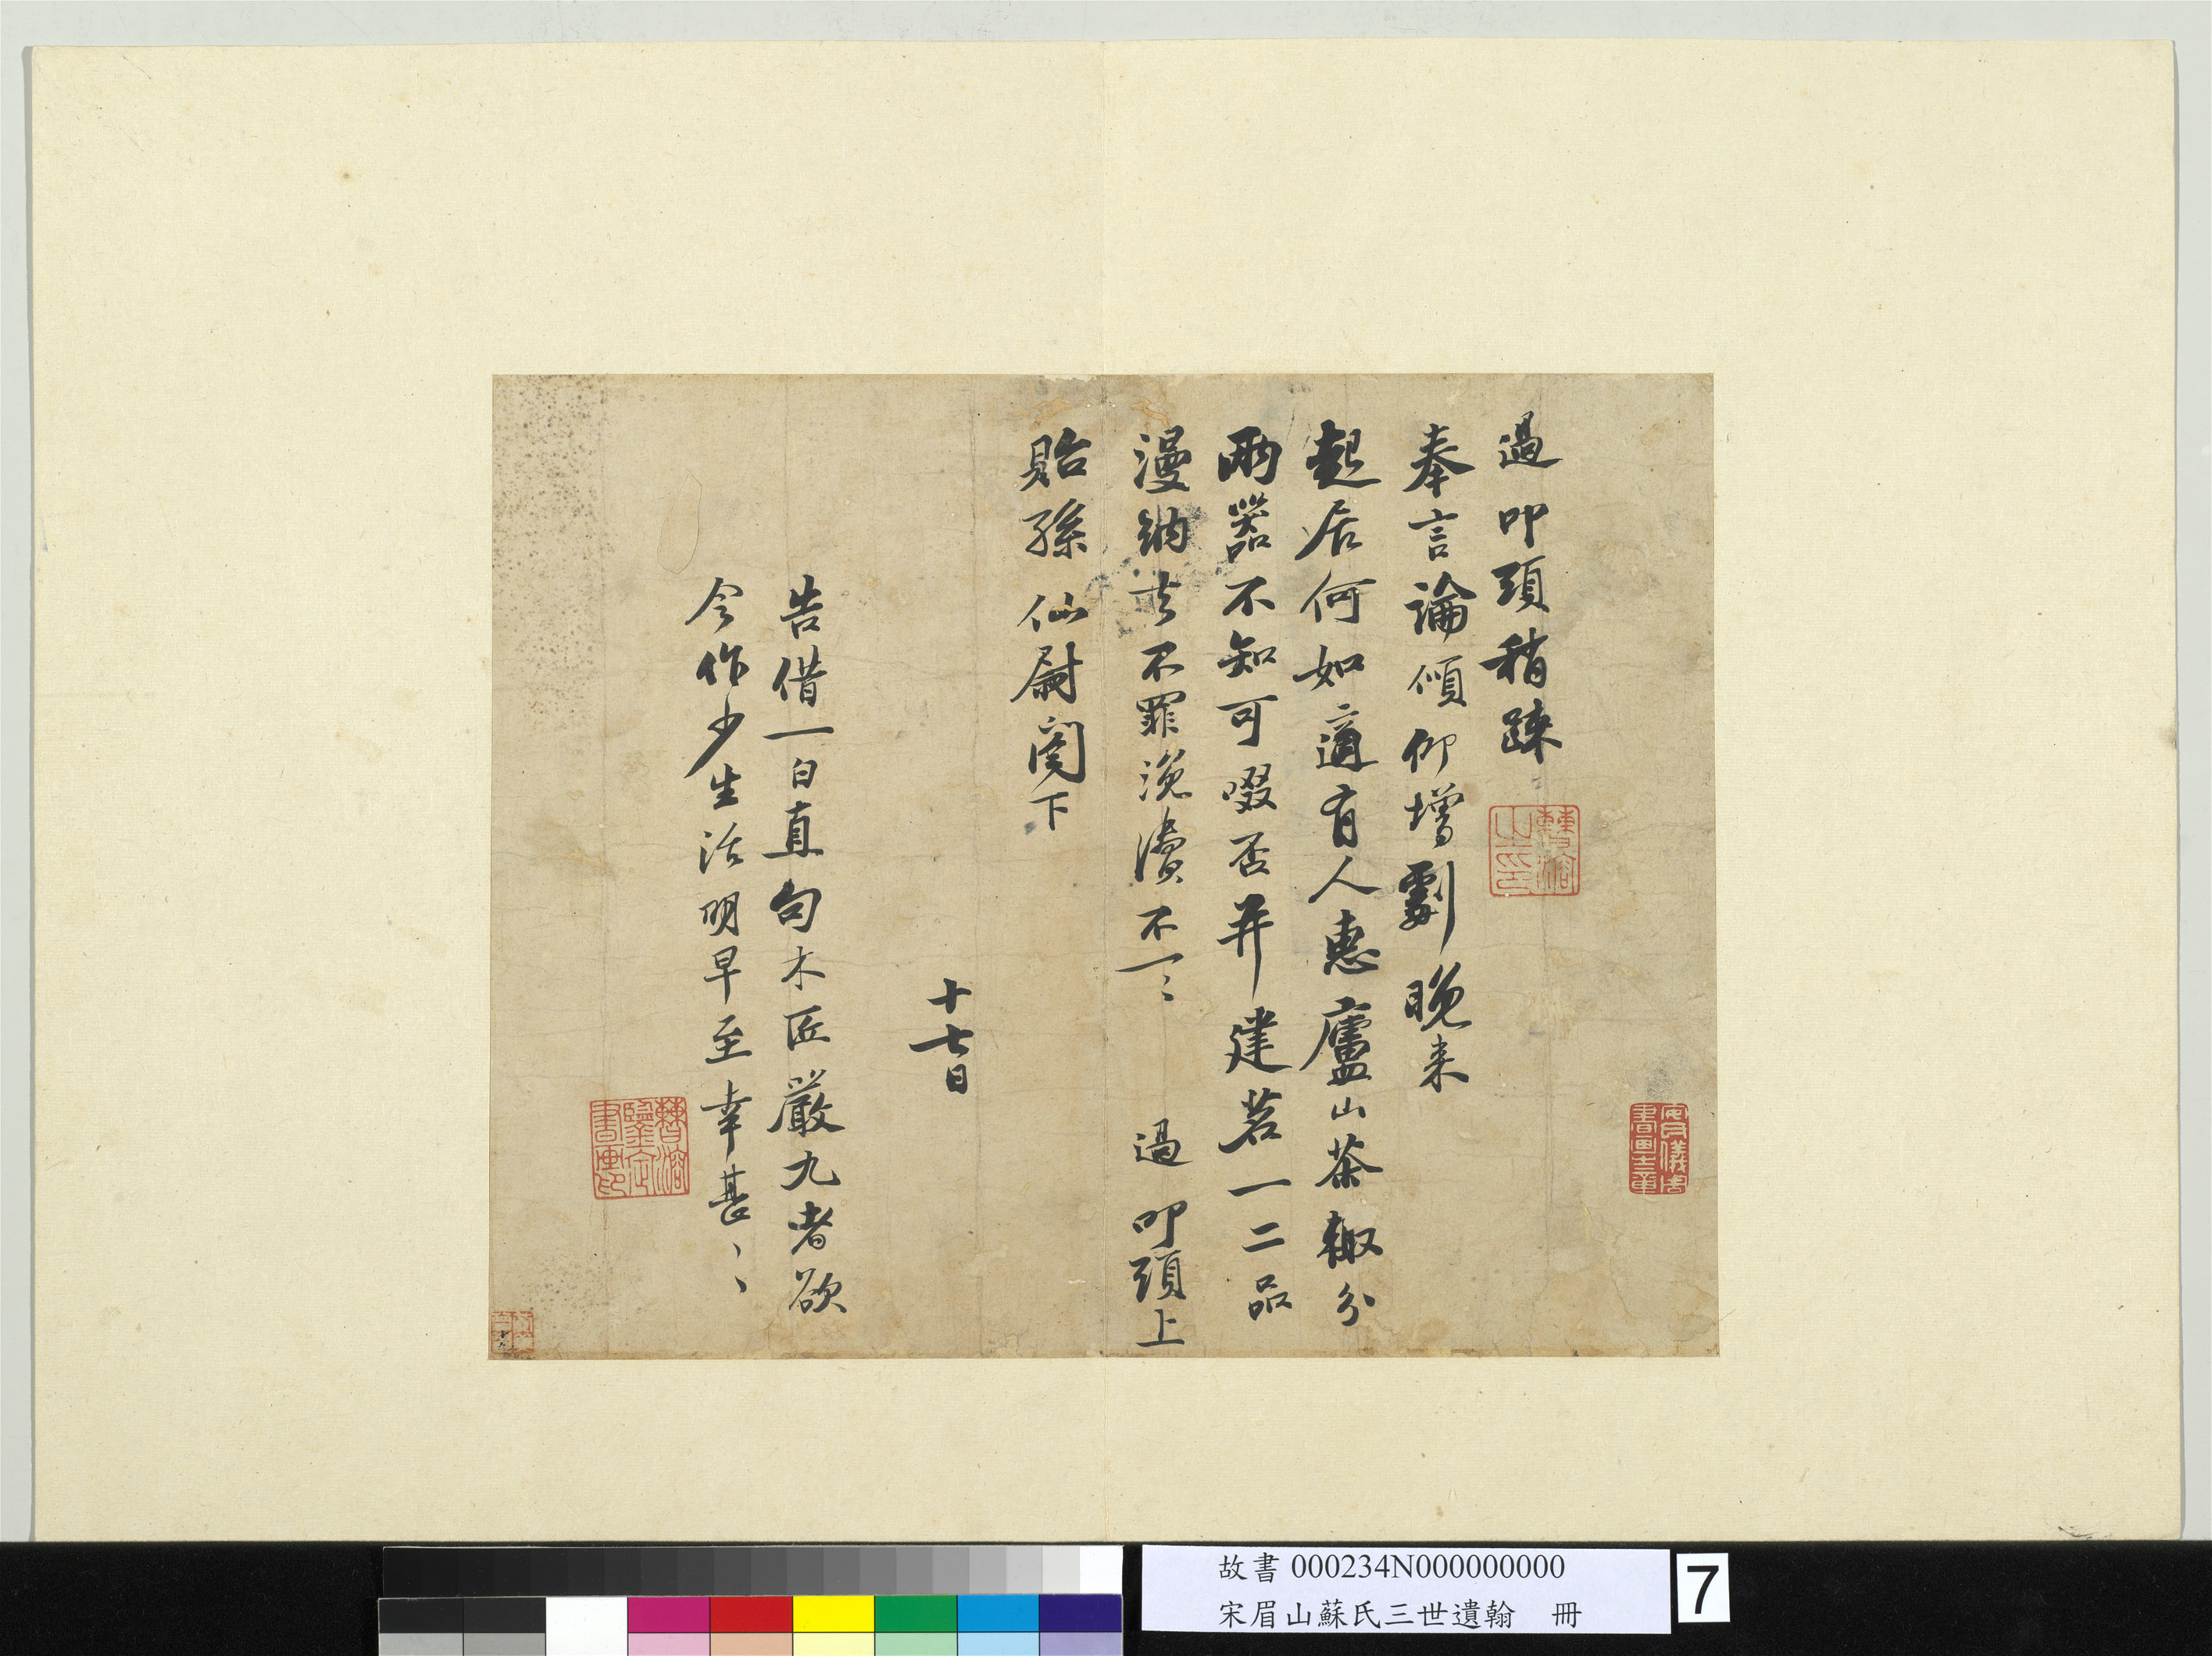 過叩頭稍疎
奉言論傾仰增劇晚来
起居何如適有人惠廬山茶輙分
兩器不知可啜否并建茗一二品
漫納去不罪浼瀆不一〻 過叩頭上
貽孫仙尉閣下
十七日
告借一白直句木匠嚴九者欲
令作少生活明早至幸甚〻〻
安儀周書畫之章
故書 000234N000000000
宋眉山蘇氏三世遺翰 冊
7